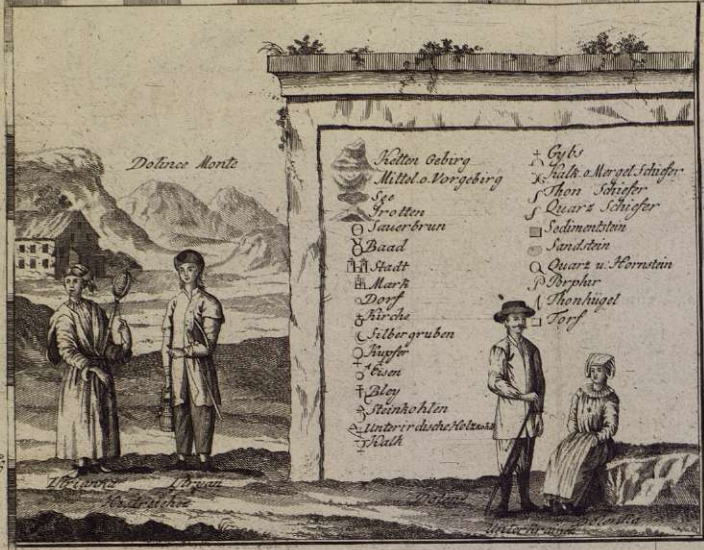 Dolince Monte
Ketten Gebirg
Mittel. o. Vorgebirg
See
Grotten
Sauerbrun
Baad
Stadt
Mark
Dorf
Kirche
Silbergruben
Kupfer
Eisen
Bley
Steinkohlen
Unterirdische
Kalk
Gybs
Kalk. o. Mergel Schiefer
Thon Schiefer
Quarz Schiefer
Sedimentstein
Sandstein
Quarz u: Hornstein
Porphir
Thonhügel
Torf